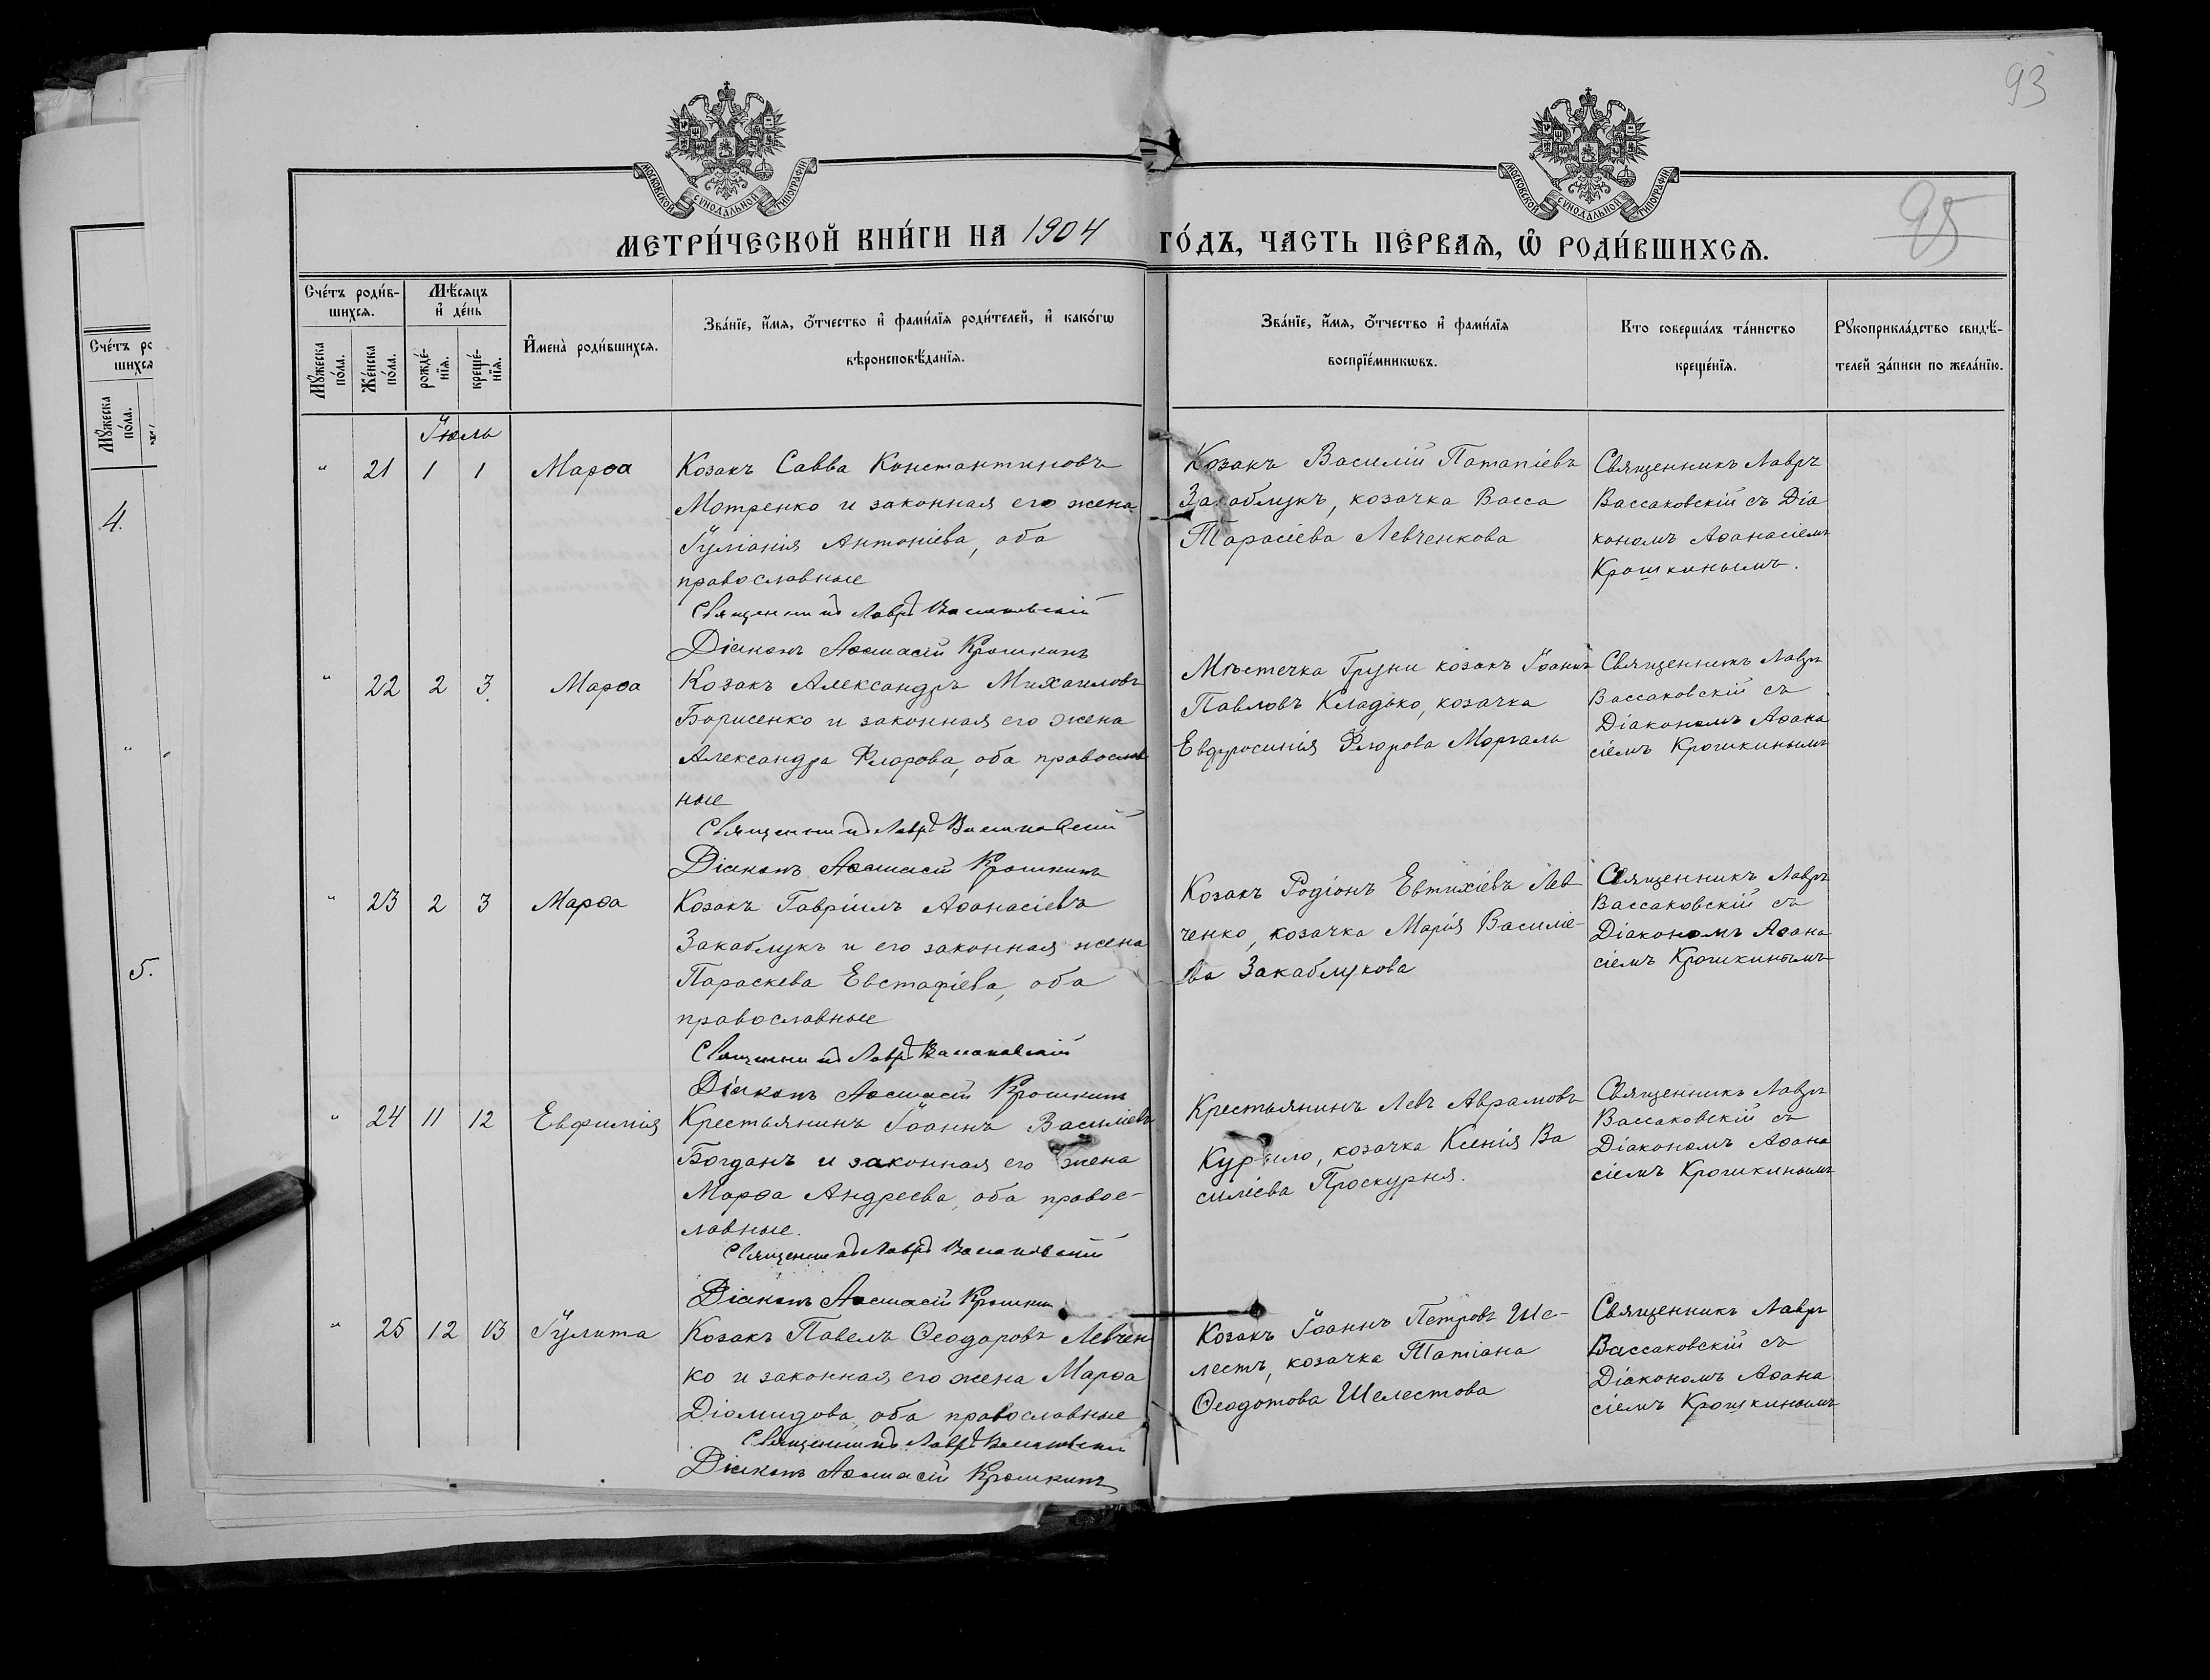 93
95
МОСКОВСКОЙ СѴНОДАЛЬНОЙ ТИПОГРАФІИ
МОСКОВСКОЙ СѴНОДАЛЬНОЙ ТИПОГРАФІИ
МЕТРИ́ЧЕСКОЙ КНИ́ГИ НА 1904 ГО́ДЪ, ЧАСТЬ ПЕ́РВАѦ, Ѡ҆ РОДИ́ВШИХСѦ.
Сче́тъ роди́в-
шихсѧ.
Мꙋ́жеска
по́ла.
Же́нска
по́ла.
Мѣ́сѧцъ
и҆ де́нь
рожде́-
нїѧ.
креще́-
нїѧ.
И҆мена̀ роди́вшихсѧ.
Зва́нїе, и҆́мѧ, ѻ҆́тчество и҆ фами́лїѧ роди́телей, и҆ како́гѡ
вѣроисповѣ́данїѧ.
Зва́нїе, и҆́мѧ, ѻ҆́тчество и҆ фами́лїѧ
воспрїе́мникѡвъ.
Кто соверша́лъ та́инство
креще́нїѧ.
Рꙋкоприкла́дство свидѣ́-
телей за́писи по жела́нїю.
Сче́тъ ро
шихсѧ
Мꙋ́жеска
по́ла.
4.
5.
Іюль
" 21 1 1 Марѳа
Козакъ Савва Константиновъ
Мотренко и законная его жена
Іуліанія Антоніева, оба
православные
Священникъ Лавръ Вассаковскій
Діаконъ Аѳанасій Крошкинъ
Козакъ Василій Патапіевъ
Закаблукъ, козачка Васса
Тарасіева Левченкова
Священникъ Лавръ
Вассаковскій съ Діа
кономъ Аѳанасіемъ
Крошкинымъ.
" 22 2 3 Марѳа
Козакъ Александръ Михаиловъ
Борисенко и законная его жена
Александра Флорова, оба православ
ные
Священникъ Лавръ Вассаковскій
Діаконъ Аѳанасій Крошкинъ
Мѣстечка Груни козакъ Іоаннъ
Павловъ Кладько, козачка
Евфросинія Флорова Моргаль
Священникъ Лавръ
Вассаковскій съ
Діакономъ Аѳана
сіемъ Крошкинымъ
" 23 2 3 Марѳа
Козакъ Гавріилъ Аѳанасіевъ
Закаблукъ и его законная жена
Параскева Евстафіева, оба
православные
Священникъ Лавръ Вассаковскій
Діаконъ Аѳанасій Крошкинъ
Козакъ Родіонъ Евтихіевъ Лев
ченко, козачка Марія Василіе-
ва Закаблукова
Священникъ Лавръ
Вассаковскій съ
Діакономъ Аѳана
сіемъ Крошкинымъ
" 24 11 12 Евфимія
Крестьянинъ Іоаннъ Василіевъ
Богданъ и законная его жена
Марѳа Андреева, оба правос-
лавные.
Священникъ Лавръ Вассаковскій
Діаконъ Аѳанасій Крошкинъ
Крестьянинъ Левъ Аврамовъ
козачка Ксенія Ва
силіева Проскурня.
Священникъ Лавръ
Вассаковскій съ
Діакономъ Аѳана
сіемъ Крошкинымъ
" 25 12 13 Іулита
Козакъ Павелъ Ѳеодоровъ Левчен
ко и законная его жена Марѳа
Діомидова, оба православные
Священникъ Лавръ Вассаковскій
Діаконъ Аѳанасій Крошкинъ
Козакъ Іоаннъ Петровъ Ше-
лестъ, козачка Татіана
Ѳеодотова Шелестова
Священникъ Лавръ
Вассаковскій съ
Діакономъ Аѳана
сіемъ Крошкинымъ